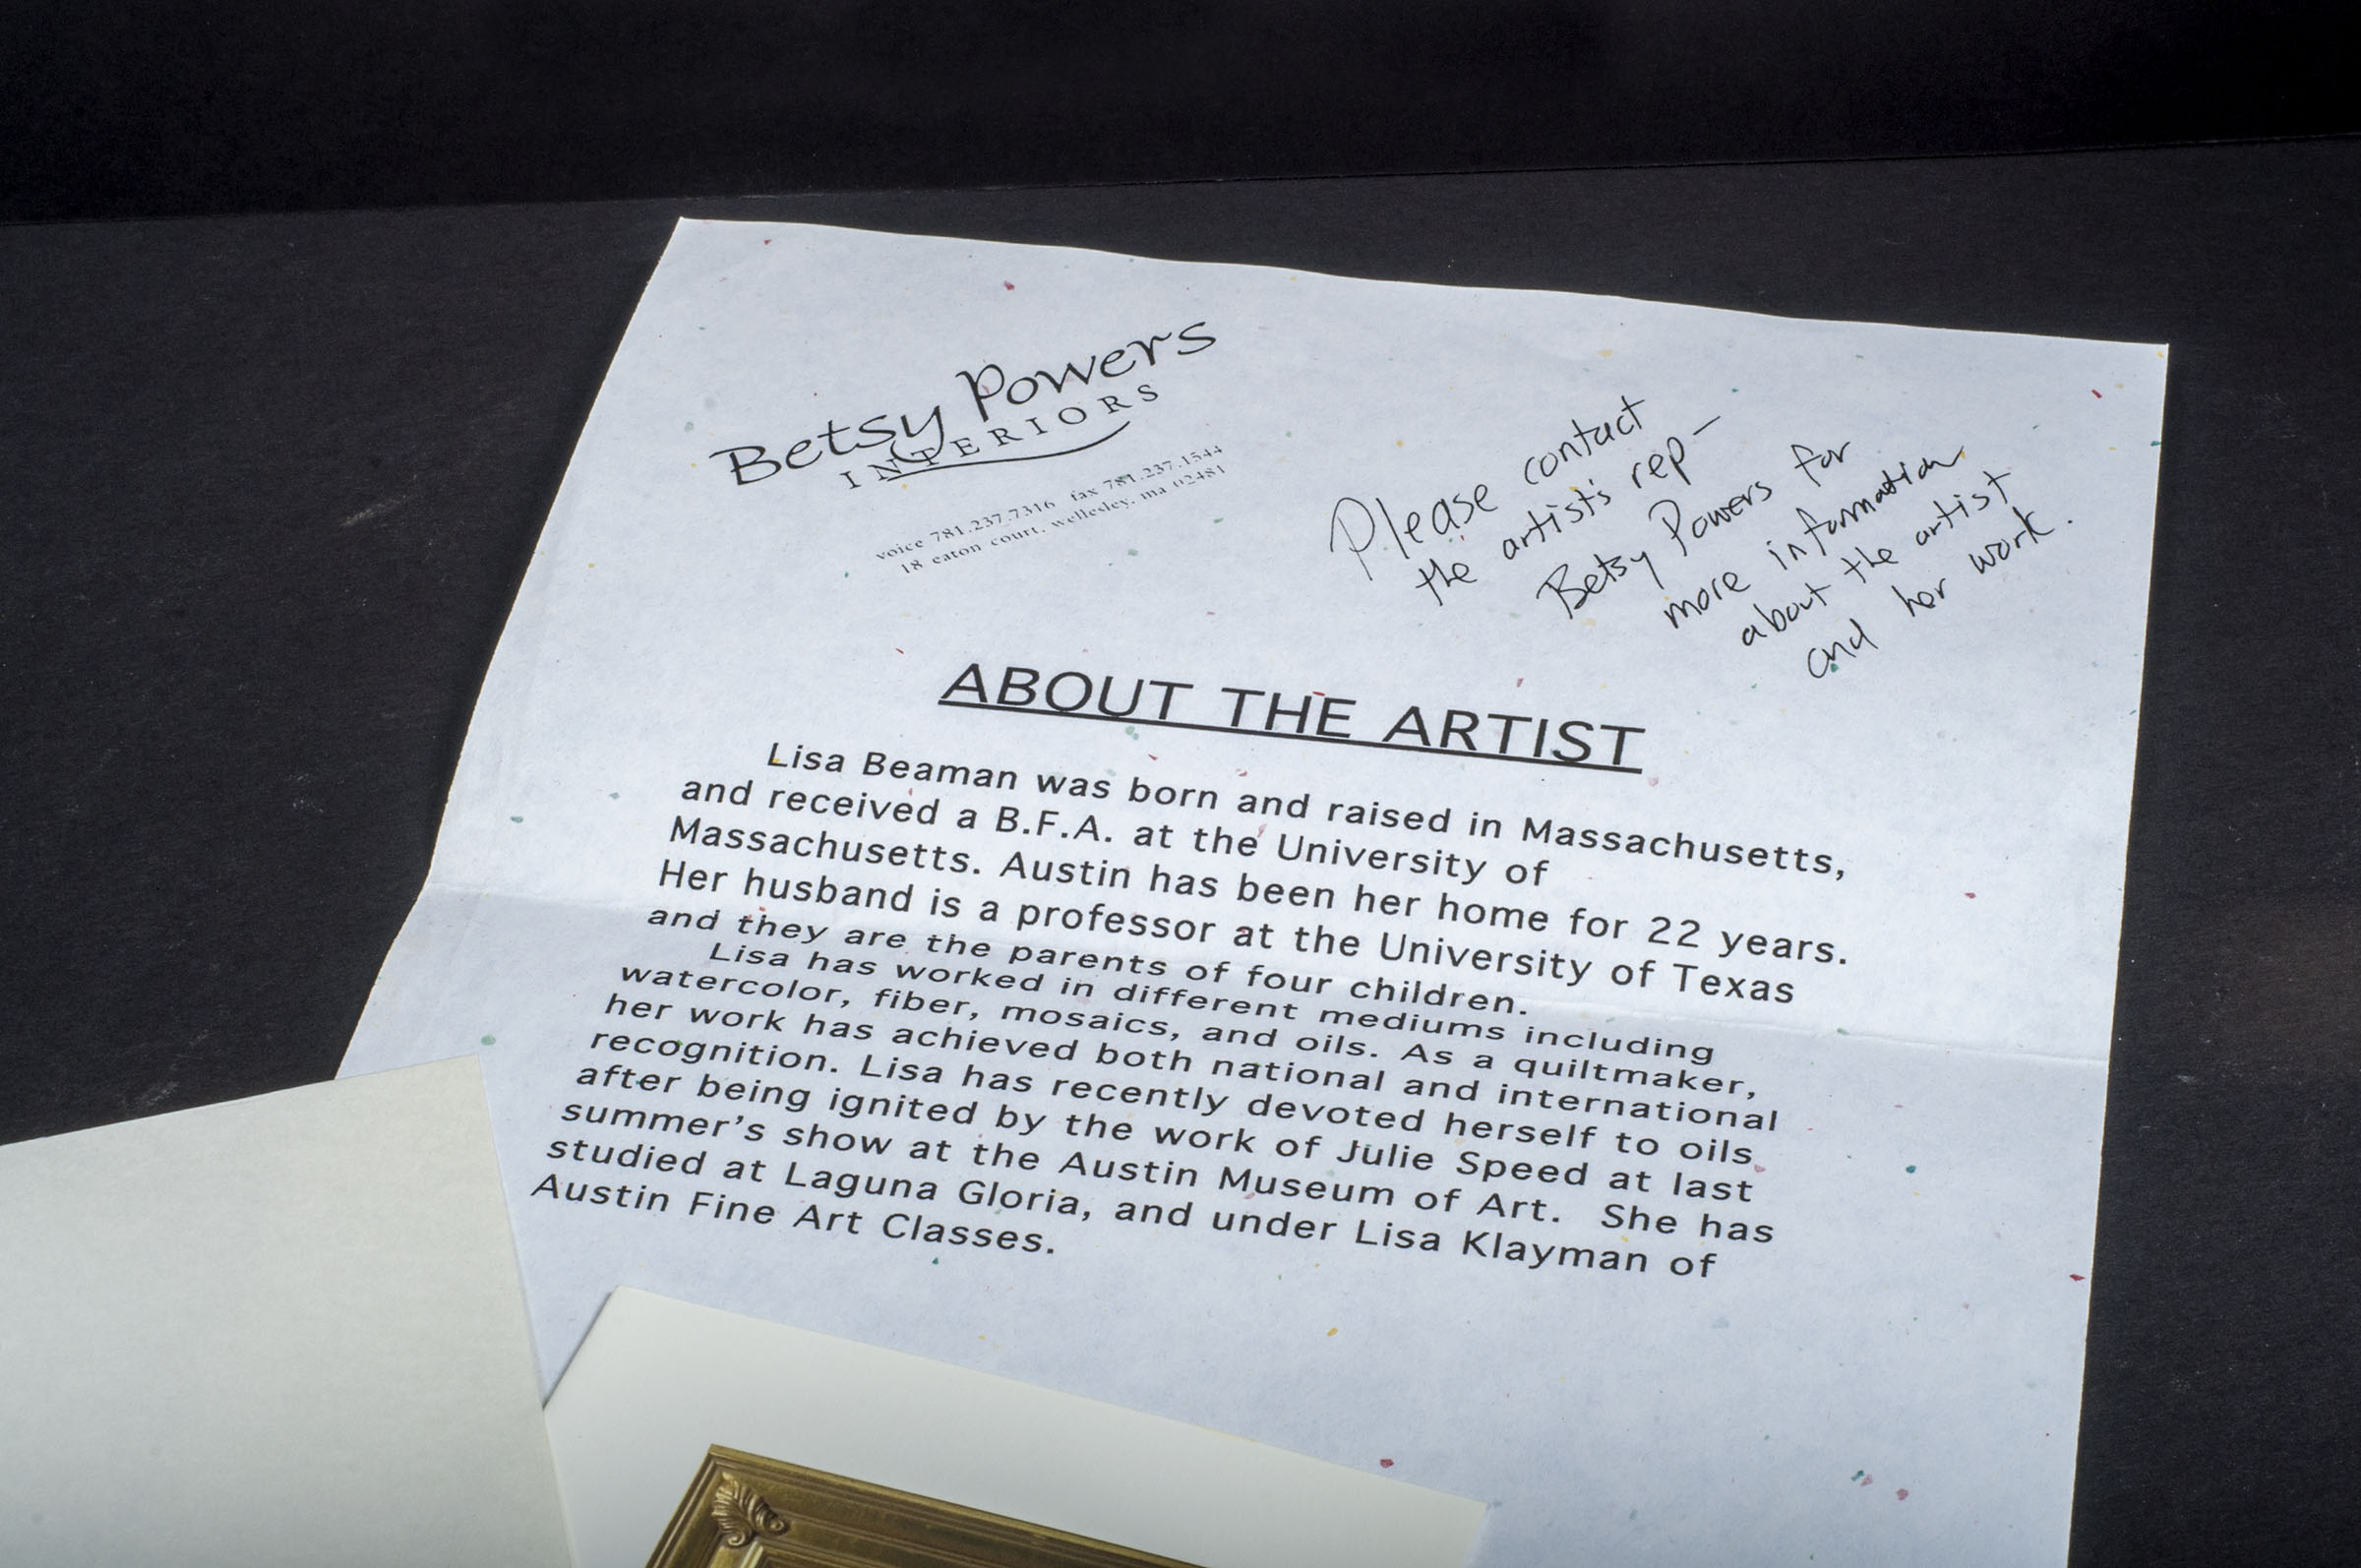 Betsy Powers
INTERIORS
voice 781.237.7316 fax 781.237.1544
18 eaton court, wellesley, ma 02481
Please contact
the artist's rep—
Betsy Powers for
more information
about the artist
and her work.
ABOUT THE ARTIST
Lisa Beaman was born and raised in Massachusetts,
and received a B.F.A. at the University of
Massachusetts. Austin has been her home for 22 years.
Her husband is a professor at the University of Texas
and they are the parents of four children.
Lisa has worked in different mediums including
watercolor, fiber, mosaics, and oils. As a quiltmaker,
her work has achieved both national and international
recognition. Lisa has recently devoted herself to oils
after being ignited by the work of Julie Speed at last
summer's show at the Austin Museum of Art. She has
studied at Laguna Gloria, and under Lisa Klayman of
Austin Fine Art Classes.